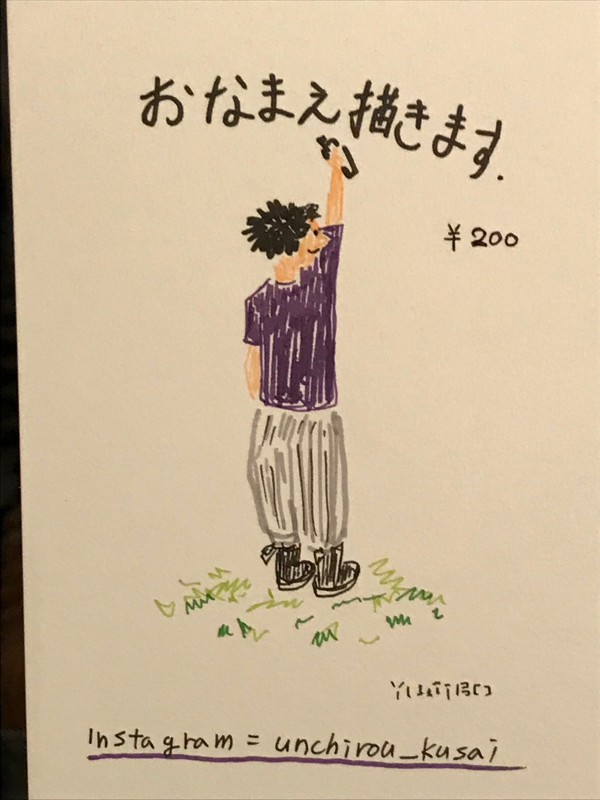 おなまえ描きます.
¥200
Instagram = unchirou_kusai